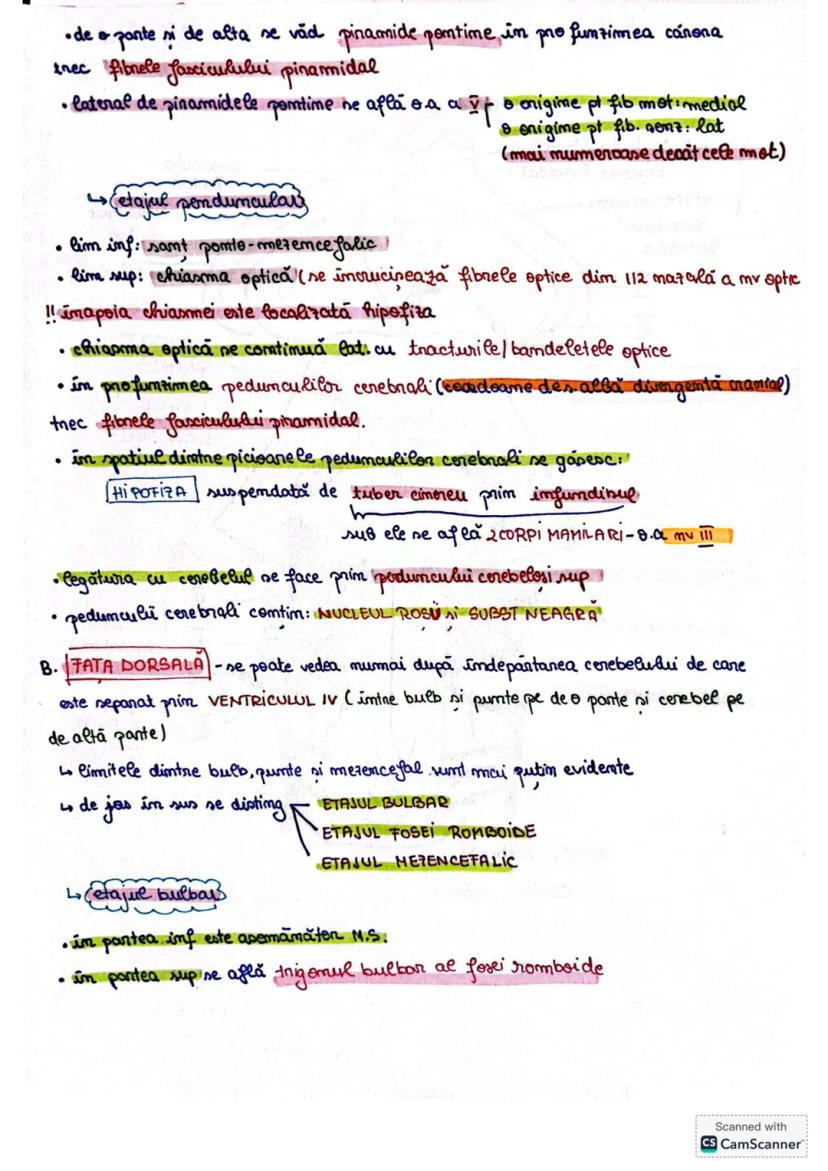 • de o parte și de alta se văd piramide pontine, în profunzimea cărora
trec fibrele fasciculului piramidal
• lateral de piramidele pontine se află o.a a V o origine pt fib mot: medial
o origine pt fib. senz: lat
(mai numeroase decât cele mot)
↳ etajul peduncular
• lim inf: șanț ponto-mezencefalic
• lim sup: chiasma optică (se încrucișează fibrele optice din 1/2 nazală a nv optic
!! înapoia chiasmei este localizată hipofiza
• chiasma optică se continuă lat. cu tracturile/bandeletele optice
• în profunzimea pedunculilor cerebrali (cordoane de s. albă divergentă cranial)
trec fibrele fasciculului piramidal.
• în spațiul dintre picioarele pedunculilor cerebrali se găsesc:
HIPOFIZA suspendată de tuber cinereu prin infundibul
sub ele se află 2 CORPI MAMILARI - o.a nv III
• legătura cu cerebelul se face prin pedunculii cerebeloși sup
• pedunculii cerebrali conțin: NUCLEUL ROȘU și SUBST NEAGRĂ
B. FAȚA DORSALĂ - se poate vedea numai după îndepărtarea cerebelului de care
este separat prin VENTRICULUL IV (între bulb și punte pe de o parte și cerebel pe
de altă parte)
↳ limitele dintre bulb, punte și mezencefal sunt mai puțin evidente
↳ de jos în sus se disting ETAJUL BULBAR
ETAJUL FOSEI ROMBOIDE
ETAJUL MEZENCEFALIC
↳ etajul bulbar
• în partea inf este asemănător M.S.
• în partea sup se află trigonul bulbar al fosei romboide
Scanned with
CS CamScanner